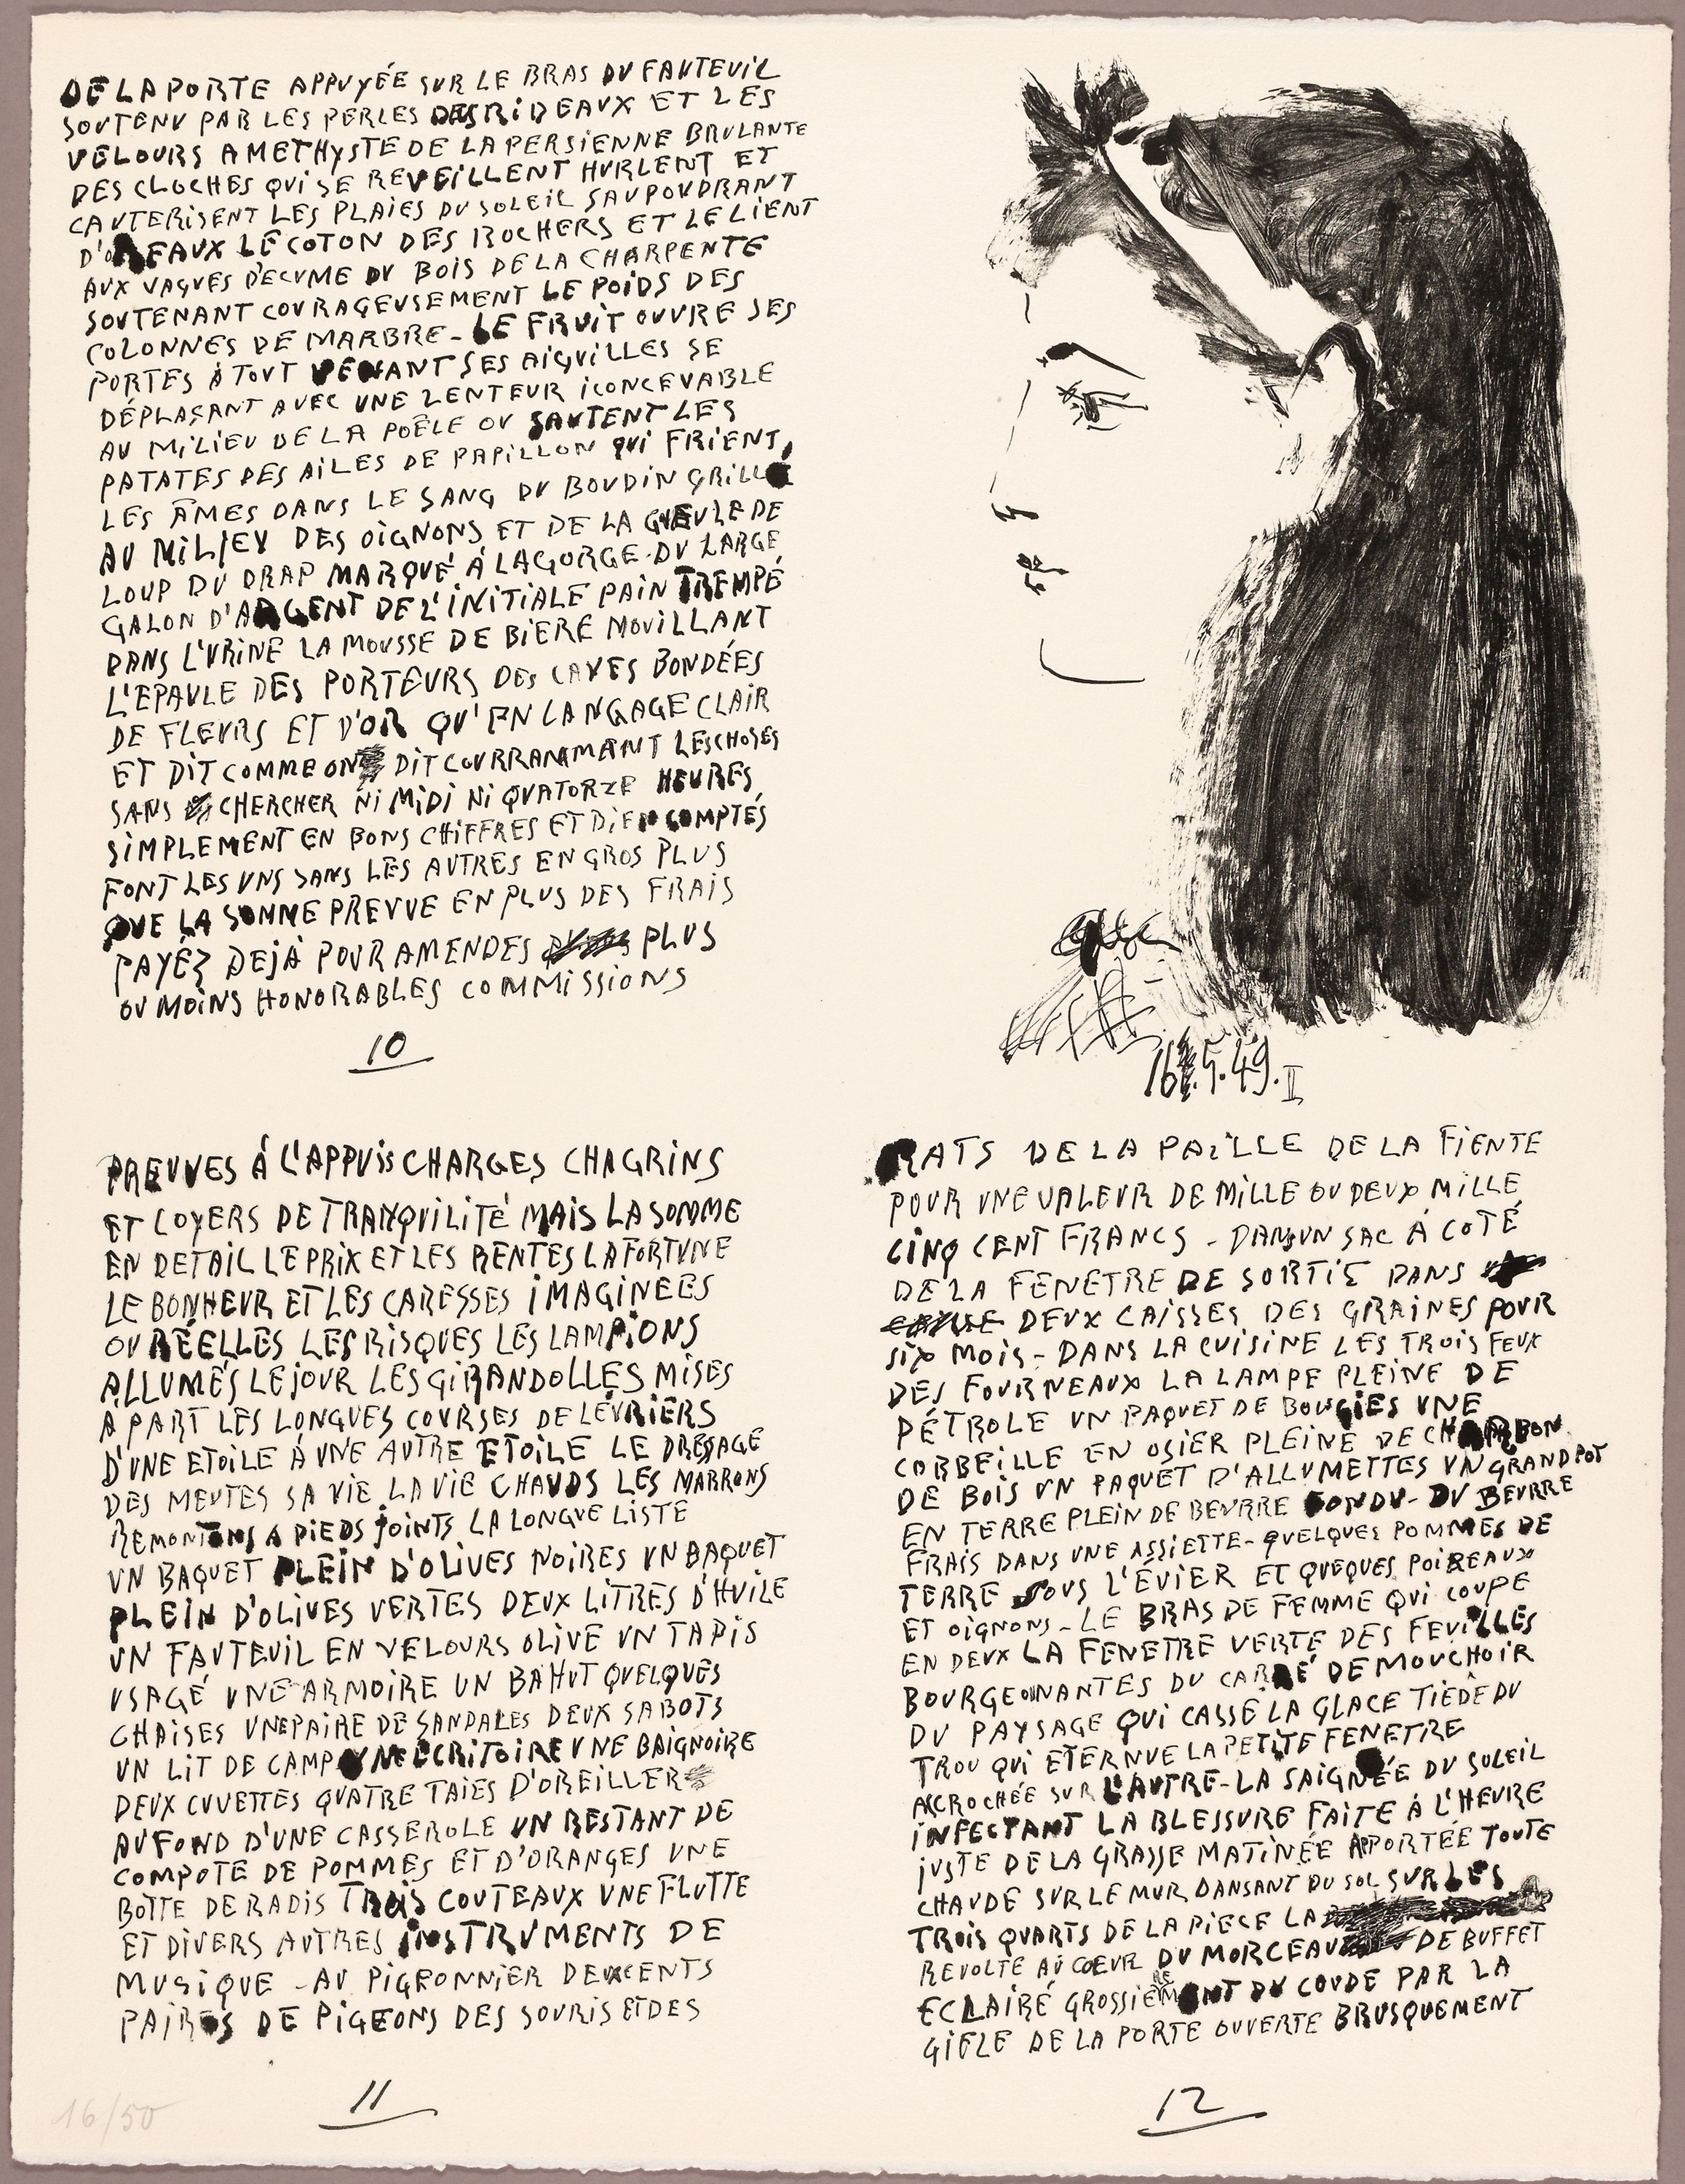 DE LA PORTE APPUYÉE SUR LE BRAS DU FAUTEUIL
SOUTENU PAR LES PERLES DES RIDEAUX ET LES
VELOURS AMETHySTE DE LA PERSIENNE BRULANTE
DES CLOCHES QUI SE REVEILLENT HURLENT ET
CAUTERISENT LES PLAIES DU SOLEIL SAUPOUDRANT
LE COTON DES ROCHERS ET LE LIENT
AUX VAGUES D'ECUME DU BOIS DE LA CHARPENTE
SOUTENANT COURAGEUSEMENT LE POIDS DES
COLONNES DE MARBRE - LE FRUIT OUVRE SES
PORTES À TOUT VENANT SES AIGUILLES SE
DÉPLAÇANT AVEC UNE LENTEUR ICONCEVABLE
AU MILIEU DE LA POÊLE OU SAUTENT LES
PATATES DES AILES DE PAPILLON QUI FRIENT,
LES ÂMES DANS LE SANG DU BOUDIN GRILLÉ
AU MILIEU DES OIGNONS ET DE LA GUEULE DE
LOUP DU DRAP MARQUÉ À LA GORGE DU LARGE
GALON D'ARGENT DE L'INITIALE PAIN TREMPÉ
DANS L'URINE LA MOUSSE DE BIERE MOUILLANT
L'EPAULE DES PORTEURS DES CAVES BONDÉES
DE FLEURS ET D'OR QU'EN LANGAGE CLAIR
ET DIT COMME ON DIT COURRANMMANT LES CHOSES
SANS CHERCHER NI MIDI NI QUATORZE HEURES
SIMPLEMENT EN BONS CHIFFRES ET BIEN COMPTÉS
FONT LES UNS SANS LES AUTRES EN GROS PLUS
QUE LA SOMME PREVUE EN PLUS DES FRAIS
PAYÉZ DEJÀ POUR AMENDES PLUS
OU MOINS HONORABLES COMMISSIONS
10
16.5.49. II
PREUVES À L'APPUIS CHARGES CHAGRINS
ET LOYERS DE TRANQUILITÉ MAIS LA SOMME
EN DETAIL LE PRIX ET LES RENTES LA FORTUNE
LE BONHEUR ET LES CARESSES IMAGINEES
OU RÉELLES LES RISQUES LES LAMPIONS
ALLUMÉS LE JOUR LES GIRANDOLLES MISES
A PART LES LONGUES COURSES DE LEVRIERS
D'UNE ETOILE À UNE AUTRE ETOILE LE DRESSAGE
DES MEUTES SA VIE LA VIE CHAUDS LES MARRONS
REMONTONS A PIEDS JOINTS LA LONGUE LISTE
UN BAQUET PLEIN D'OLIVES NOIRES UN BAQUET
PLEIN D'OLIVES VERTES DEUX LITRES D'HUILE
UN FAUTEUIL EN VELOURS OLIVE UN TAPIS
USAGÉ UNE ARMOIRE UN BAHUT QUELQUES
CHAISES UNE PAIRE DE SANDALES DEUX SABOTS
UN LIT DE CAMP UNE ECRITOIRE UNE BAIGNOIRE
DEUX CUVETTES QUATRE TAIES D'OREILLER
AU FOND D'UNE CASSEROLE UN RESTANT DE
COMPOTE DE POMMES ET D'ORANGES UNE
BOTTE DE RADIS TROIS COUTEAUX UNE FLUTTE
ET DIVERS AUTRES INSTRUMENTS DE
MUSIQUE - AU PIGEONNIER DEUXCENTS
PAIRES DE PIGEONS DES SOURIS ET DES
11
16/50
RATS DE LA PAILLE DE LA FIENTE
POUR UNE VALEUR DE MILLE OU DEUX MILLE
CINQ CENT FRANCS - DANS UN SAC À COTÉ
DE LA FENETRE DE SORTIE DANS
DEUX CAISSES DES GRAINES POUR
SIX MOIS - DANS LA CUISINE LES TROIS FEUX
DES FOURNEAUX LA LAMPE PLEINE DE
PÉTROLE UN PAQUET DE BOUGIES UNE
CORBEILLE EN OSIER PLEINE DE CHARBON
DE BOIS UN PAQUET D'ALLUMETTES UN GRAND POT
EN TERRE PLEIN DE BEURRE FONDU - DU BEURRE
FRAIS DANS UNE ASSIETTE - QUELQUES POMMES DE
TERRE SOUS L'ÉVIER ET QUEQUES POIREAUX
ET OIGNONS - LE BRAS DE FEMME QUI COUPE
EN DEUX LA FENETRE VERTE DES FEUILLES
BOURGEONNANTES DU CARRÉ DE MOUCHOIR
DU PAYSAGE QUI CASSE LA GLACE TIÈDE DU
TROU QUI ETERNUE LA PETITE FENETRE
ACCROCHÉE SUR L'AUTRE - LA SAIGNÉE DU SOLEIL
INFECTANT LA BLESSURE FAITE À L'HEURE
JUSTE DE LA GRASSE MATINÉE APPORTÉE TOUTE
CHAUDE SUR LE MUR DANSANT DU SOL SUR LES
TROIS QUARTS DE LA PIECE LA
REVOLTE AU COEUR DU MORCEAU DE BUFFET
ECLAIRÉ GROSSIEREMENT DU COUDE PAR LA
GIFLE DE LA PORTE OUVERTE BRUSQUEMENT
12